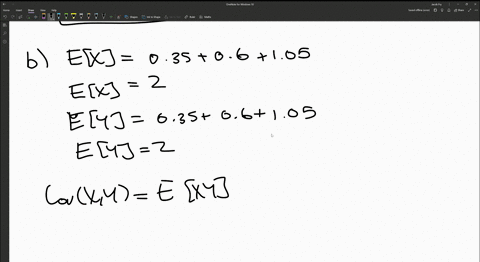 b) E[X] = 0.35 + 0.6 + 1.05
E[X] = 2
E[Y] = 0.35 + 0.6 + 1.05
E[Y] = 2
Cov(X,Y) = E[XY]